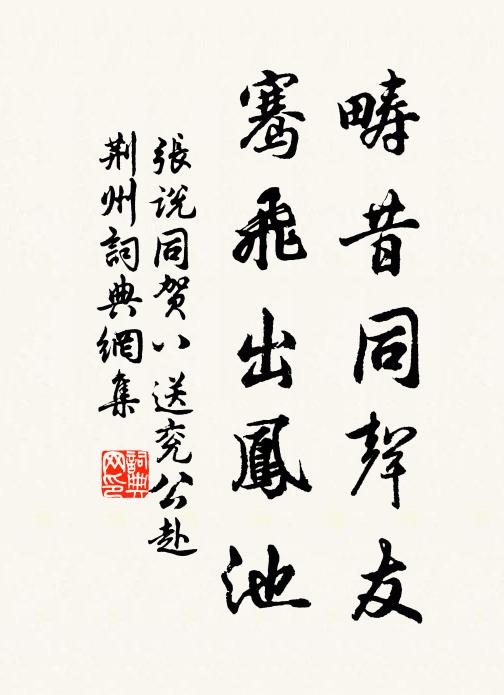 疇昔同聲友
騫飛出鳳池
張說同賀八送兗公赴
荆州詞典網集
詞典网印